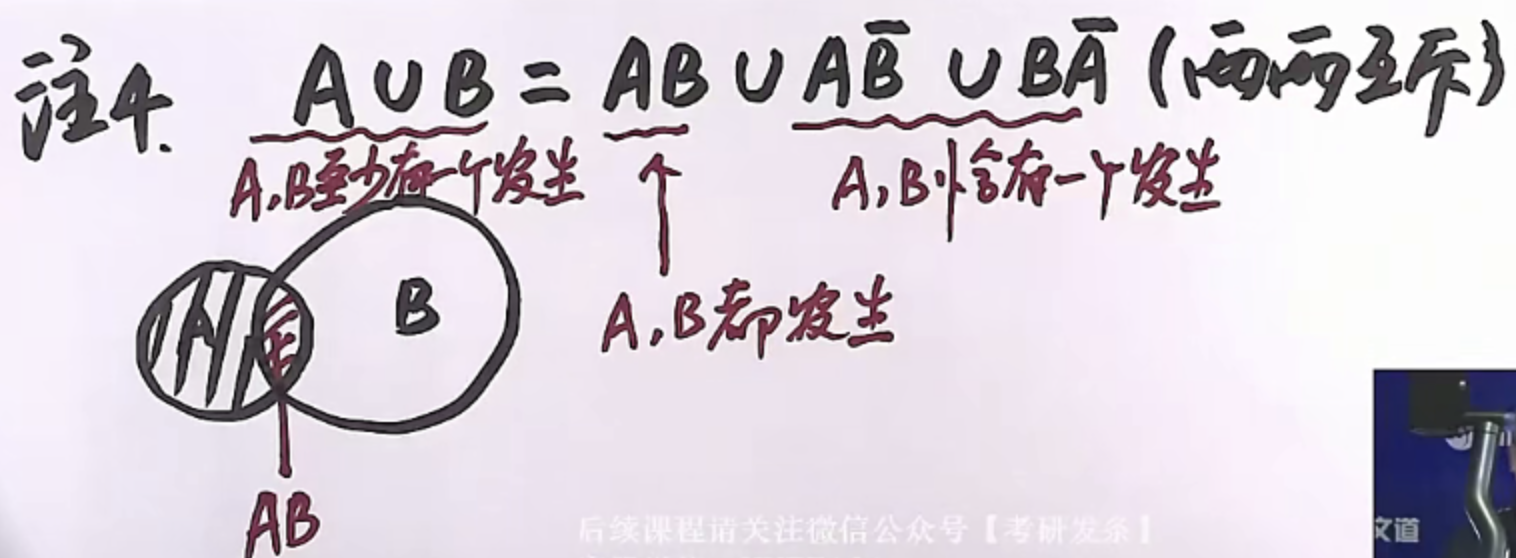 注4. A∪B = AB ∪ AB̄ ∪ BĀ (两两互斥)
A,B至少有一个发生
A,B恰有一个发生
A
B
A,B都发生
AB
后续课程请关注微信公众号【考研发条】
文道